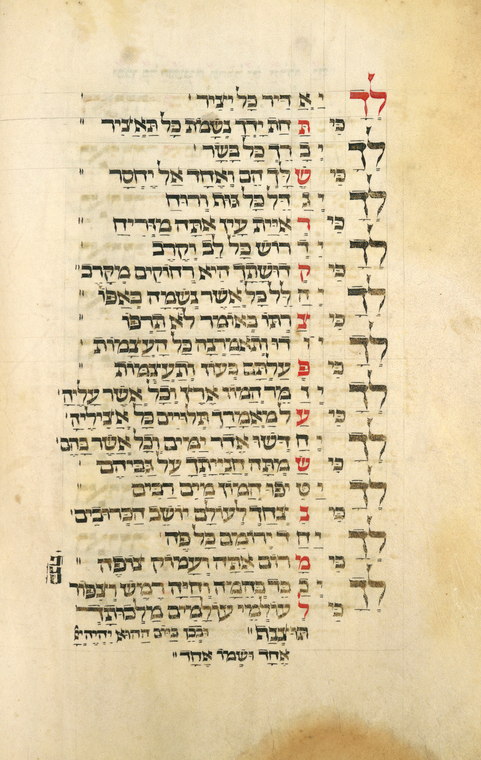 לך יאדיר כל יציר
כי תחת ידך נשמת כל תאציר
לך יברך כל בשר
כי שלך הם ואחד אל יחסר
לך יגדל כל גות ורוח
כי אתה מזריח
לך ידרוש כל לב וקרב
כי קדושתך היא רחוקים מקרב
לך יהלל כל אשר נשמה באפו
כי צרתו באומר לא תרפו
לך יודו ותאמרנה כל העצמות
כי פעלתם בעוז ותעצמות
לך יזמר המון ארץ וכל אשר עליה
כי על מאמרך תלויים כל אציליה
לך יחדשו אדר ימים וכל אשר בהם
כי שמתה חנייתך על גביהם
לך יטיפו המון מים רבים
כי נצחך לעולם יושב הכרובים
לך יחד ירוממו כל פה
כי מרום אתה ועמוק צופה
לך יכבד בהמה וחיה רמש וצפור
כי לעולמי עולמים מלכותך
ובכן ביום ההוא יהיה יי
אחד ושמו אחד